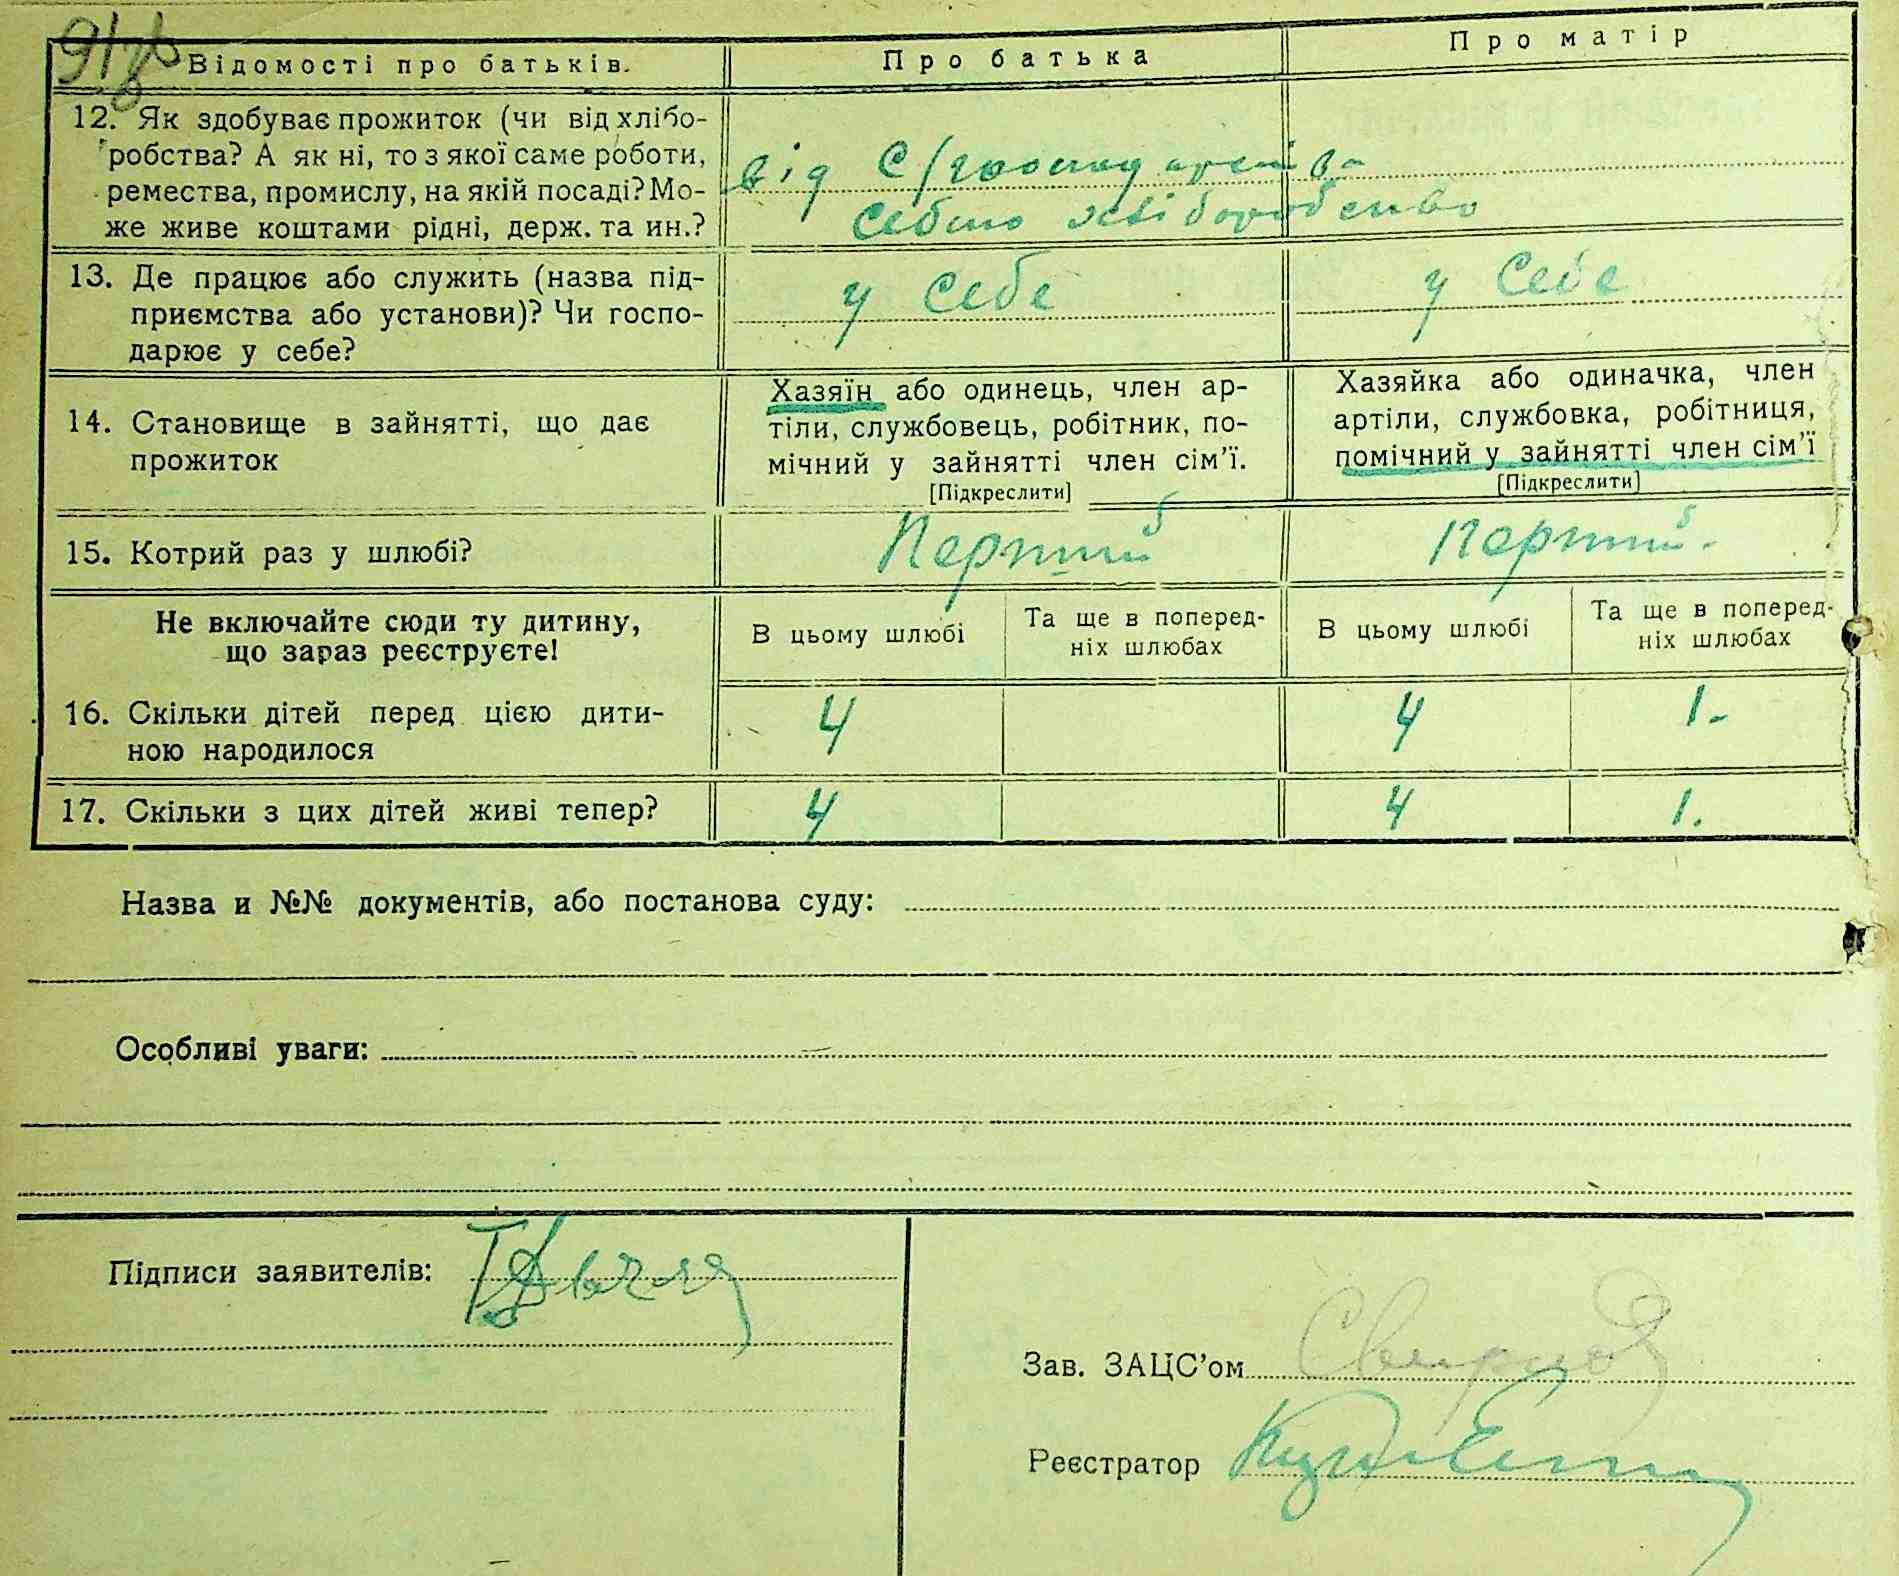 91зв
Відомості про батьків.
Про батька
Про матір
12. Як здобуває прожиток (чи від хлібо-
робства? А як ні, то з якої саме роботи,
ремества, промислу, на якій посаді? Мо-
же живе коштами рідні, держ. та ин.?
від С/господарства
себто хліборобство
13. Де працює або служить (назва під-
приємства або установи)? Чи госпо-
дарює у себе?
у себе
у себе
14. Становище в зайнятті, що дає
прожиток
Хазяїн або одинець, член ар-
тіли, службовець, робітник, по-
мічний у зайнятті член сім'ї.
[Підкреслити]
Хазяйка або одиначка, член
артіли, службовка, робітниця,
помічний у зайнятті член сім'ї
[Підкреслити]
15. Котрий раз у шлюбі?
Перший
Перший.
Не включайте сюди ту дитину,
що зараз реєструєте!
В цьому шлюбі
Та ще в поперед-
ніх шлюбах
В цьому шлюбі
Та ще в поперед-
ніх шлюбах
16. Скільки дітей перед цією дити-
ною народилося
4
4
1.-
17. Скільки з цих дітей живі тепер?
4
4
1.
Назва и №№ документів, або постанова суду:
Особливі уваги:
Підписи заявителів:
Зав. ЗАЦС'ом
Реєстратор